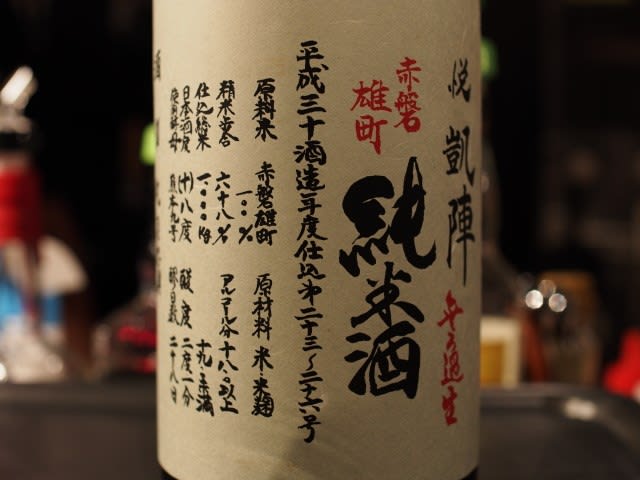 悦凱陣
無ろ過生
赤磐
雄町
純米酒
平成三十酒造年度仕込第二十三〜二十六号
原料米 赤磐雄町
一〇〇%
原材料 米・米麹
精米歩合 六十八%
アルコール分 十八・〇以上
十九・〇未満
仕込総米 一〇〇〇kg
日本酒度 (十)八度
酸度 二度一分
使用酵母 熊本九号
醪日数 二十八日